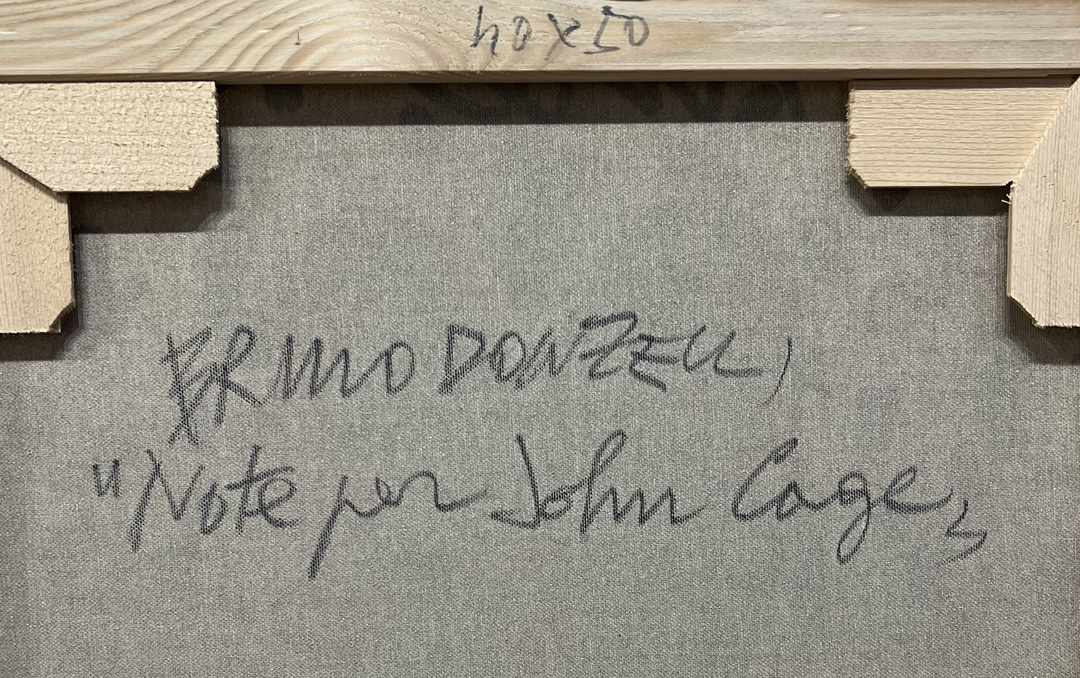 40x50
ERMIO DONZELLI
"Note per John Cage"